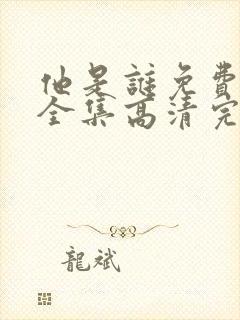 他是誰免費
全集高清完
龍斌